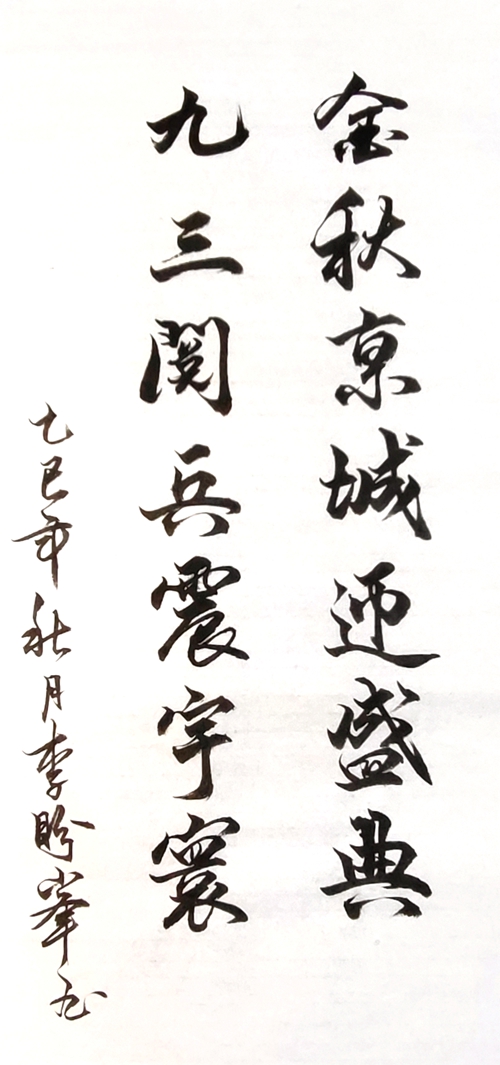 金秋京城迎盛典
九三閱兵震宇寰
乙巳年秋月李盼峯书